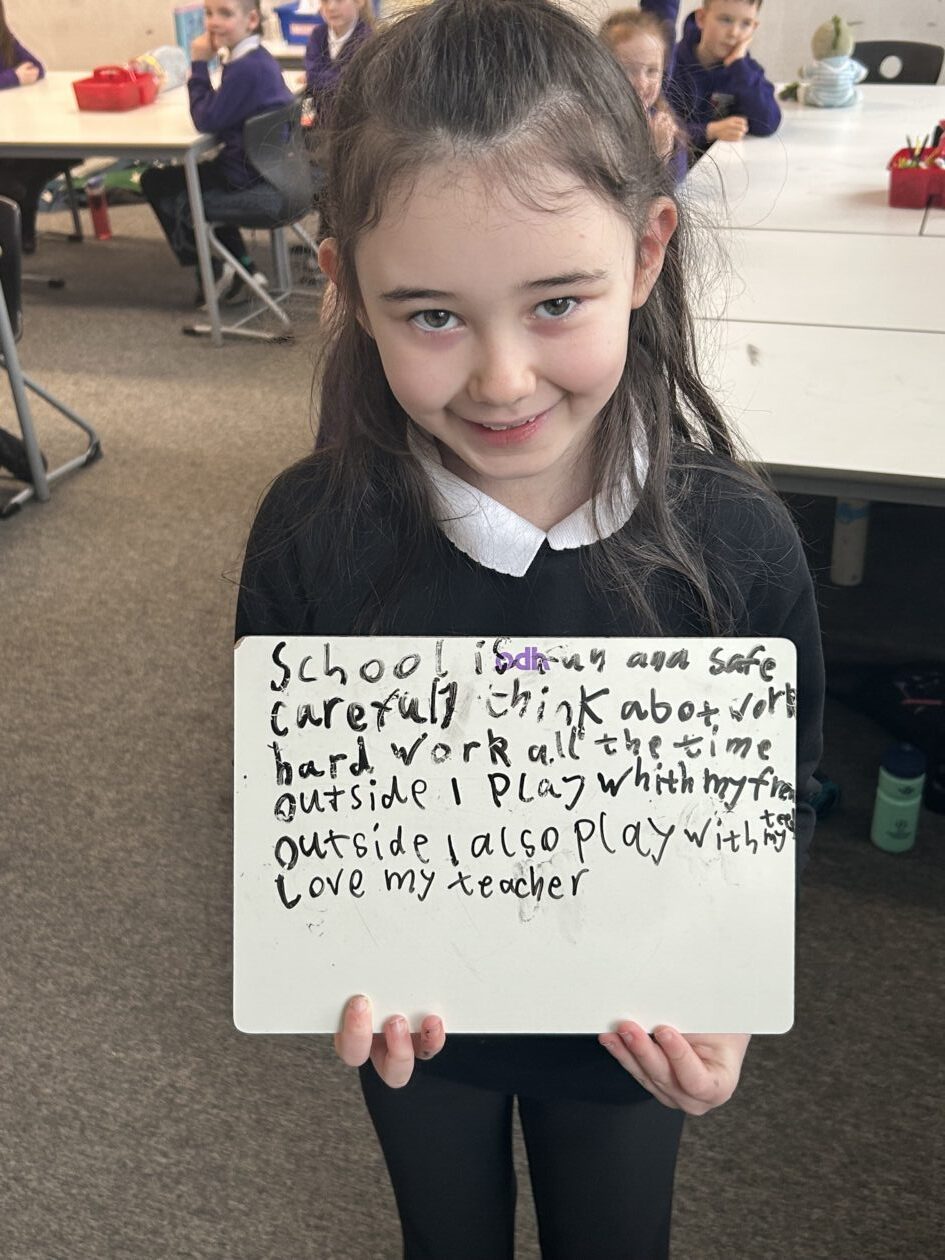 School is fun and safe
carefully think abot work
hard work all the time
outside I Play whith my
outside I also play with my
Love my teacher